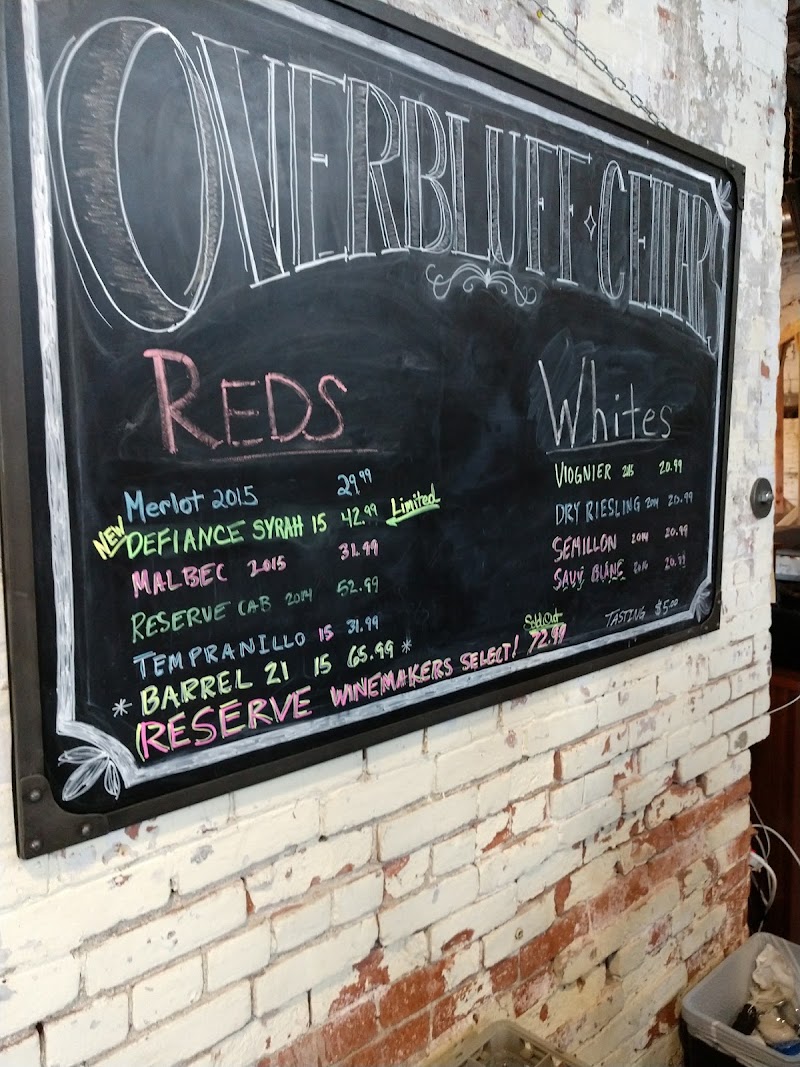 OVERBLUFF CELLARS
REDS
Merlot 2015 29.99
NEW DEFIANCE SYRAH 15 42.99 Limited
MALBEC 2015 31.99
RESERVE CAB 2014 52.99
TEMPRANILLO 15 31.99
* BARREL 21 15 65.99 *
RESERVE WINEMAKERS SELECT! 72.99
Sold Out
Whites
VIOGNIER 2015 20.99
DRY RIESLING 2014 20.99
SEMILLON 2014 20.99
SAUV BLANC 2016 20.99
TASTING $5.00